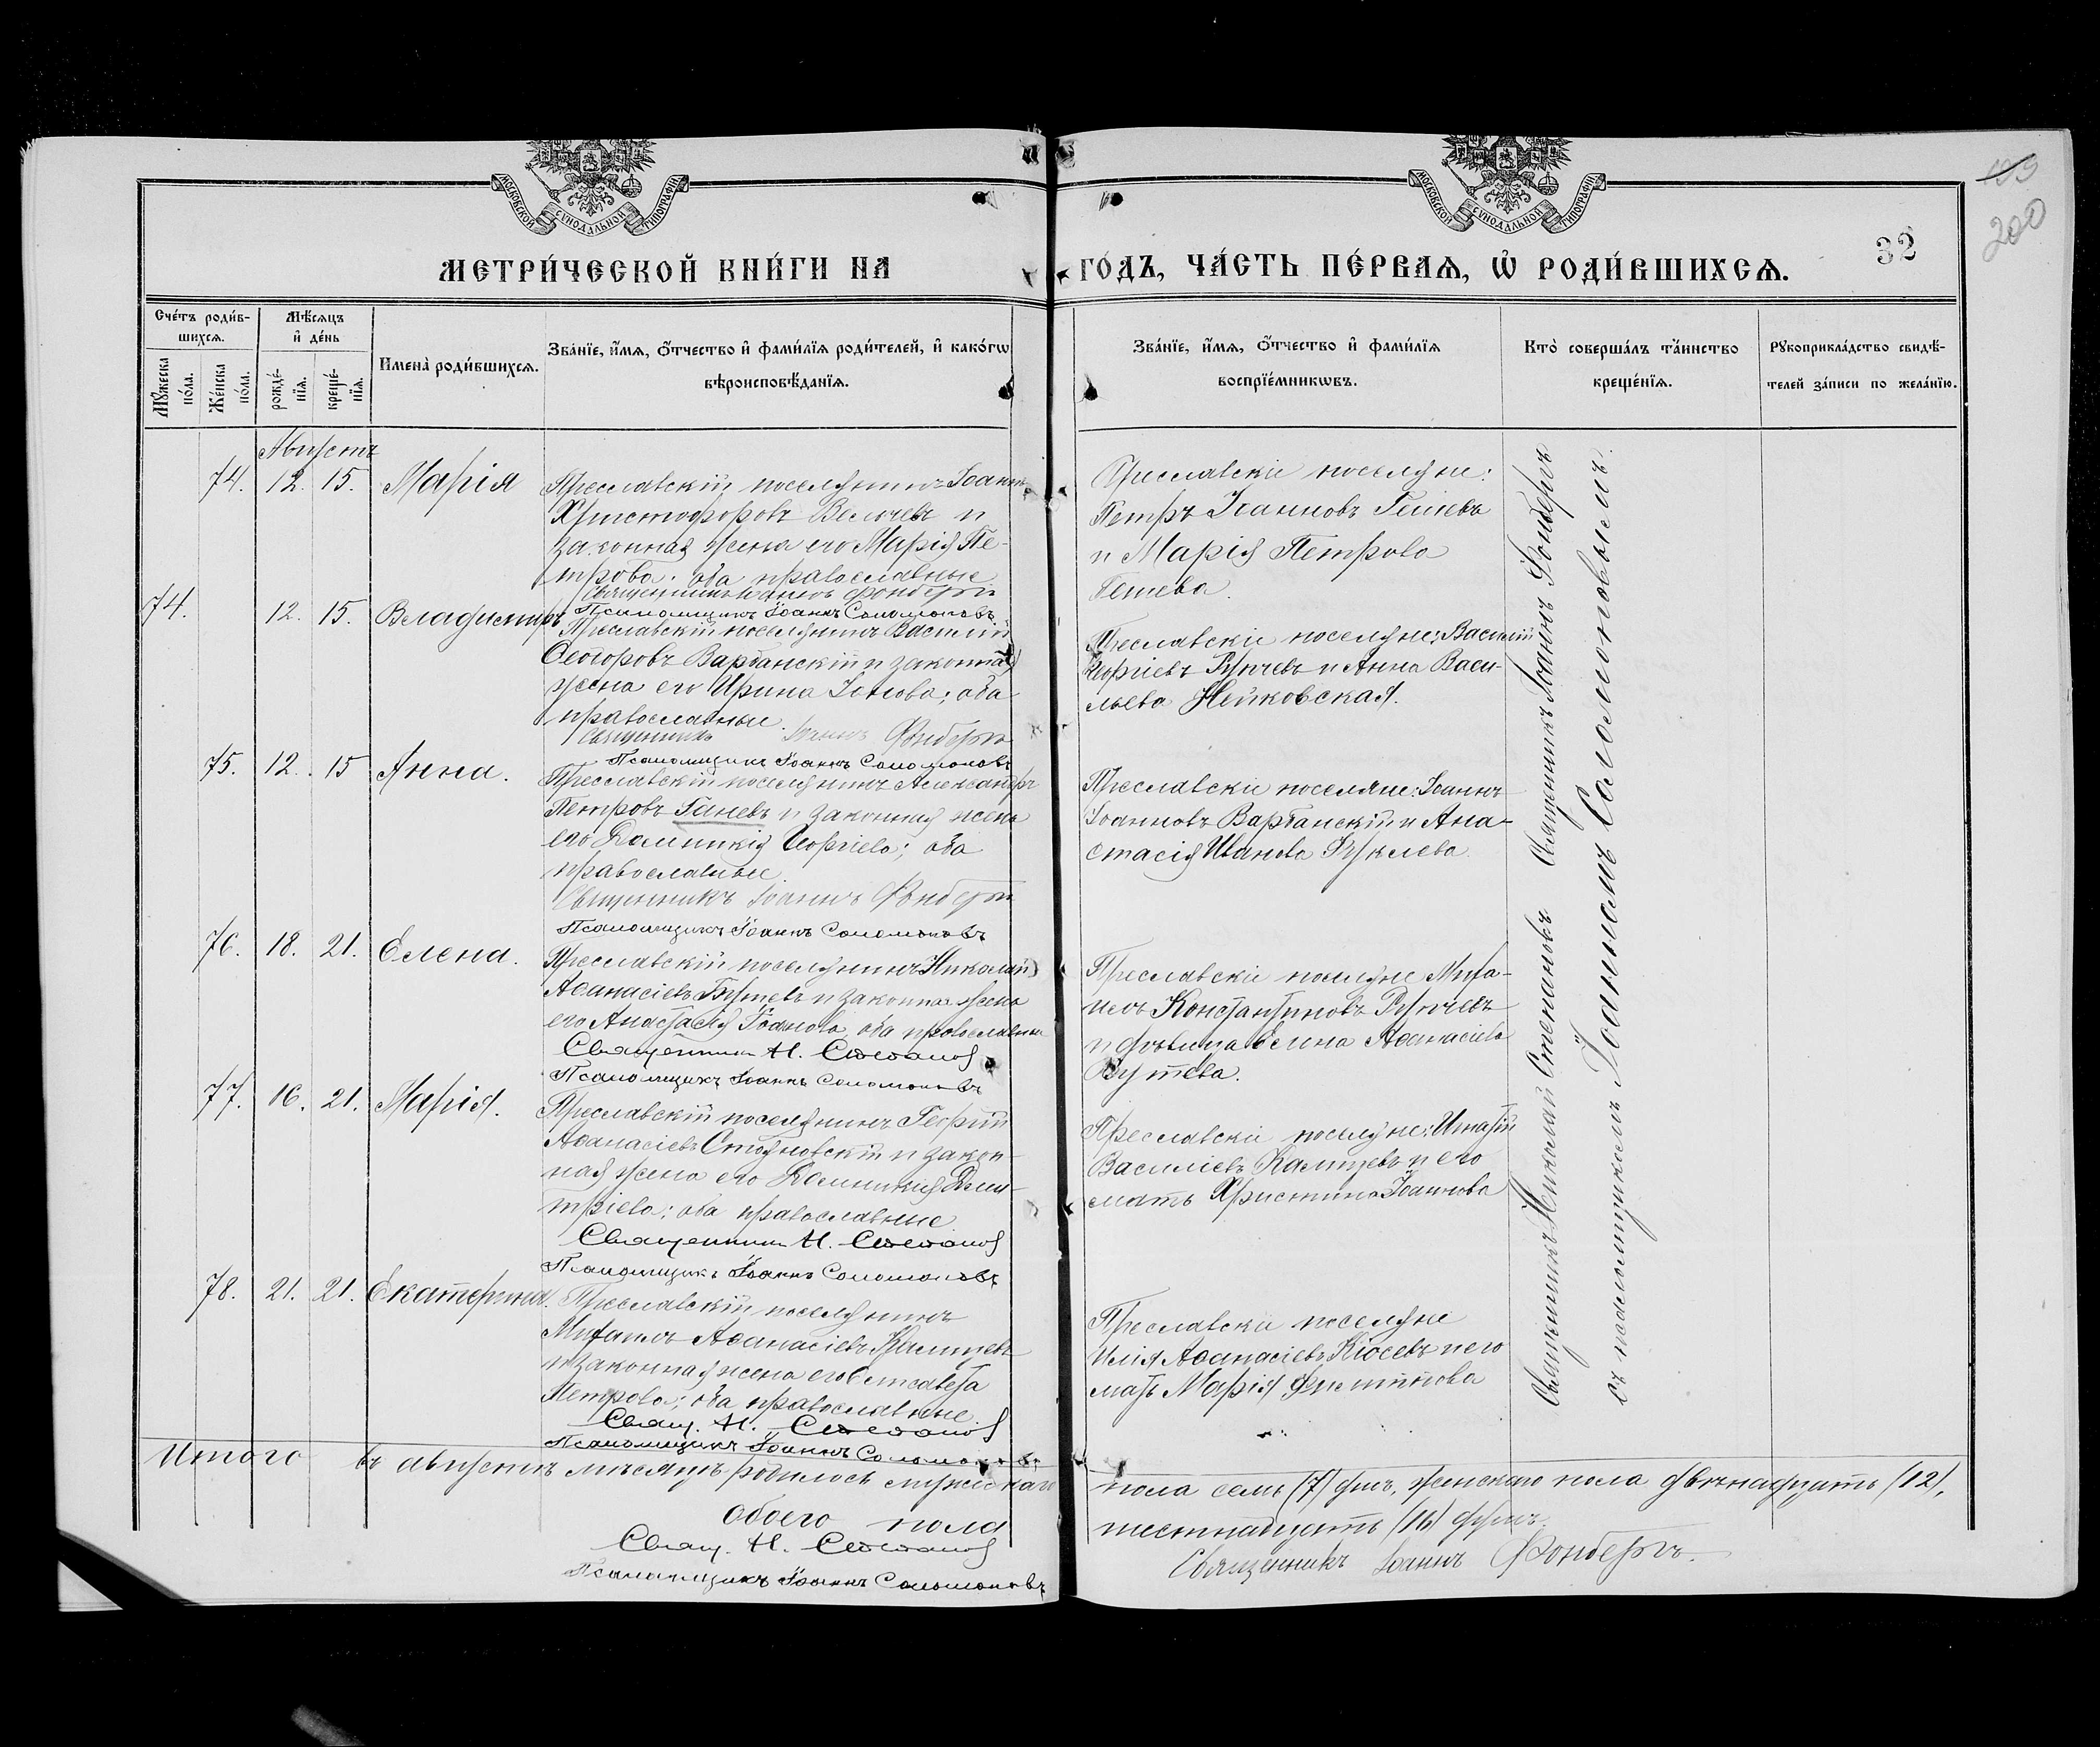 МОСКОВСКОЙ СѴНОДАЛЬНОЙ ТИПОГРАФІИ
МОСКОВСКОЙ СѴНОДАЛЬНОЙ ТИПОГРАФІИ
МЕТРИ́ЧЕСКОЙ КНИ́ГИ НА
ГО́ДЪ, ЧА́СТЬ ПЕ́РВАЯ, Ѡ҆ РОДИ́ВШИХСѦ.
32
200
Сче́тъ роди́в-
шихсѧ.
Мꙋ́жеска по́ла.
Же́нска по́ла.
Мѣ́сѧцъ
и҆ де́нь
рожде́-
нїѧ.
креще́-
нїѧ.
И҆мена̀ роди́вшихсѧ.
Зва́нїе, и҆́мѧ, ѻ҆́тчество и҆ фами́лїѧ роди́телей, и҆ како́гѡ
вѣроисповѣ́данїѧ.
Зва́нїе, и҆́мѧ, ѻ҆́тчество и҆ фами́лїѧ
воспрїе́мникѡвъ.
Кто̀ соверша́лъ та́инство
креще́нїѧ.
Рꙋкоприкла́дство свидѣ́-
телей за́писи по жела́нїю.
Августъ
74. 12. 15. Марія
Преславскій поселянинъ Іоаннъ
Христофоровъ Велчевъ и
законная жена его Марія Пе-
трова; оба православные
Священникъ Іоаннъ Фонбергъ
Псаломщикъ Іоаннъ Соломоновъ
Преславскіе поселяне:
Петръ Іоанновъ Гешевъ
и Марія Петрова
Гешева.
74. 12. 15. Владиміръ
Преславскій поселянинъ Василій
Ѳеодоровъ Варбанскій и законная
жена его Ирина Іонова; оба
православные.
Священникъ Іоаннъ Фонбергъ
Псаломщикъ Іоаннъ Соломоновъ
Преславскіе поселяне: Василій
Георгіевъ и Анна Васи-
льева Нейковская.
75. 12. 15 Анна.
Преславскій поселянинъ Александръ
Петровъ Ганевъ и законная жена
его Калиникія Георгіева; оба
православные.
Священникъ Іоаннъ Фонбергъ
Псаломщикъ Іоаннъ Соломоновъ
Преславскіе поселяне: Іоаннъ
Іоанновъ Варбанскій и Ана-
стасія Иванова
76. 18. 21. Елена.
Преславскій поселянинъ Николай
Аѳанасіевъ и законная жена
его Анастасія Іоанова, оба православные
Священникъ Н. Степановъ
Псаломщикъ Іоаннъ Соломоновъ
Преславскіе поселяне Миха-
илъ Константиновъ
и дѣвица Елена Аѳанасіева
77. 16. 21. Марія.
Преславскій поселянинъ Георгій
Аѳанасіевъ Стояновскій и закон-
ная жена его Калиникія Дими-
тріева; оба православные
Священникъ Н. Степановъ
Псаломщикъ Іоаннъ Соломоновъ
Преславскіе поселяне: Игнатій
Василіевъ Калчевъ и его
мать Христина Іоаннова
78. 21. 21. Екатерина.
Преславскій поселянинъ
Михаилъ Аѳанасіевъ Калчевъ
и законная жена его Елисавета
Петрова; оба православные.
Свящ. Н. Степановъ
Псаломщикъ Іоаннъ Соломоновъ
Преславскіе поселяне
Илія Аѳанасіевъ Кіосевъ и его
мать Марія Филиппова
Священникъ Николай Степановъ Священникъ Іоаннъ Фонбергъ
съ псаломщикомъ Іоанномъ Соломоновымъ.
Итого въ августѣ мѣсяцѣ родилось мужескаго
пола семь (7) душъ, женскаго пола двѣнадцать (12),
обоего пола
шестнадцать (16) душъ.
Свящ. Н. Степановъ
Священникъ Іоаннъ Фонбергъ.
Псаломщикъ Іоаннъ Соломоновъ